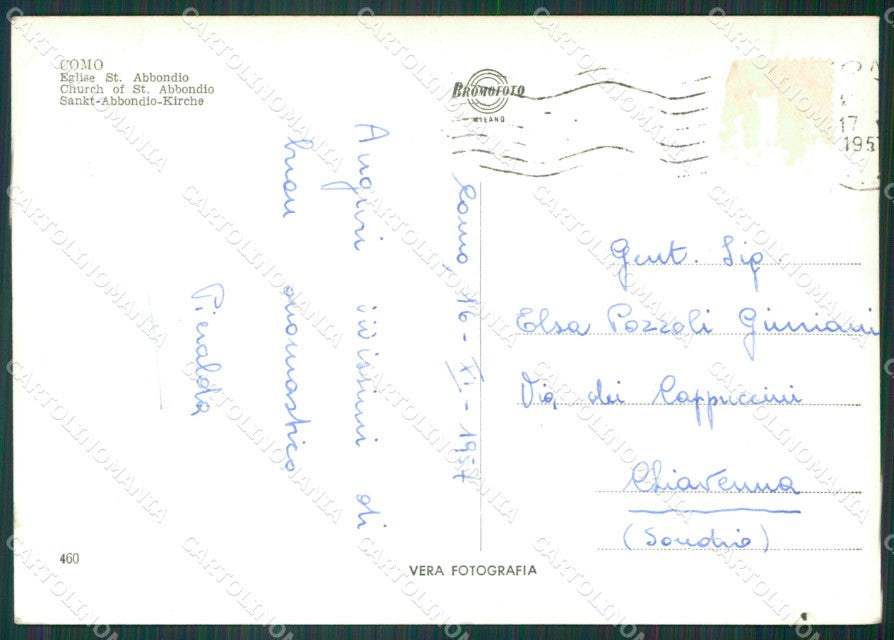 COMO
Eglise St. Abbondio
Church of St. Abbondio
Sankt-Abbondio-Kirche
BROMOFOTO
MILANO
17
1957
Como, 16-XI-1957
Auguri vivissimi di
buon onomastico
Pieralda
Gent. Sig
Elsa Pozzoli Giuriani
Via dei Cappuccini
Chiavenna
(Sondrio)
460
VERA FOTOGRAFIA
CARTOLINOMANIA